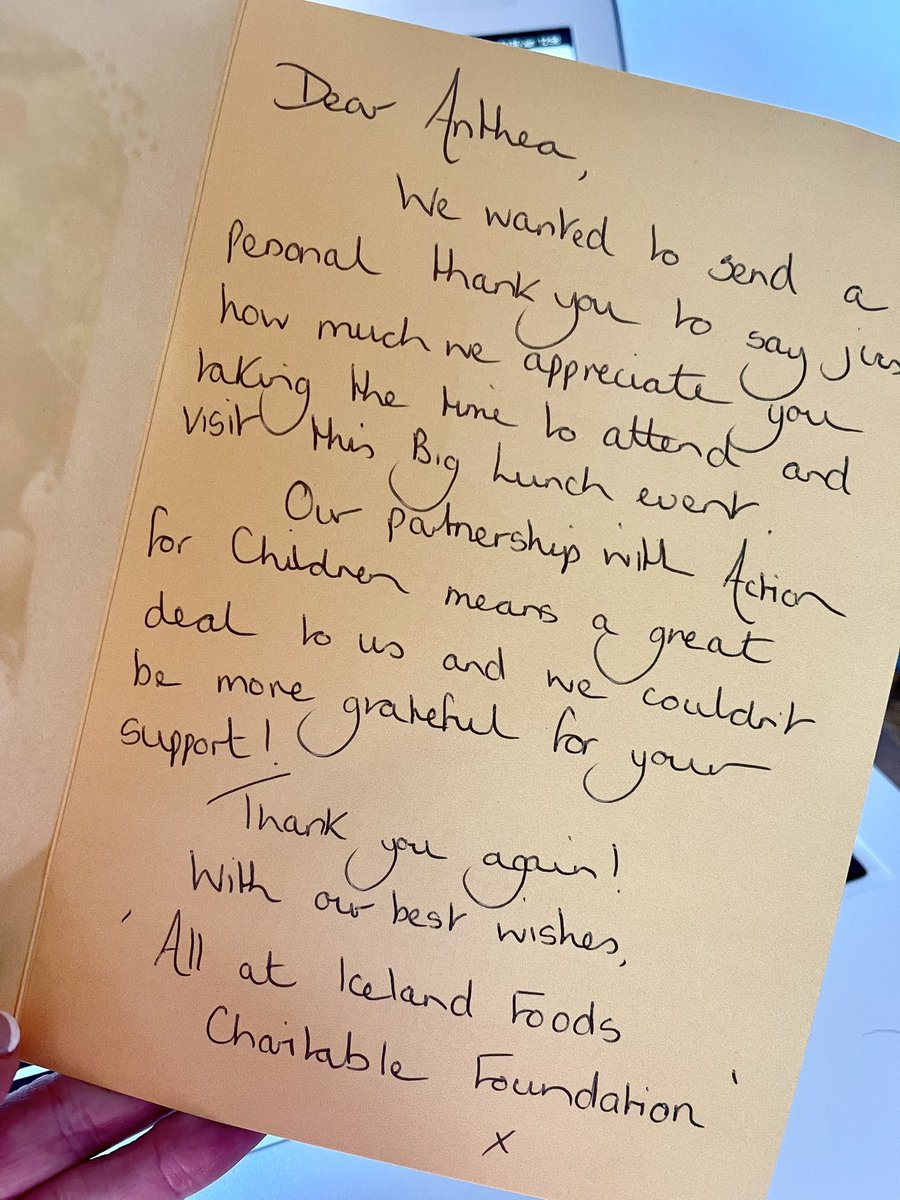 Dear Anthea,
We wanted to send a
Pesonal thank you to say jus
how much we appreciate you
taking the time to attend and
visit this Big Lunch event.
Our partnership with Action
for Children means a great
deal to us and we couldn't
be more grateful for your
support!
Thank you again!
With our best wishes,
'All at Iceland Foods
Charitable Foundation'
x